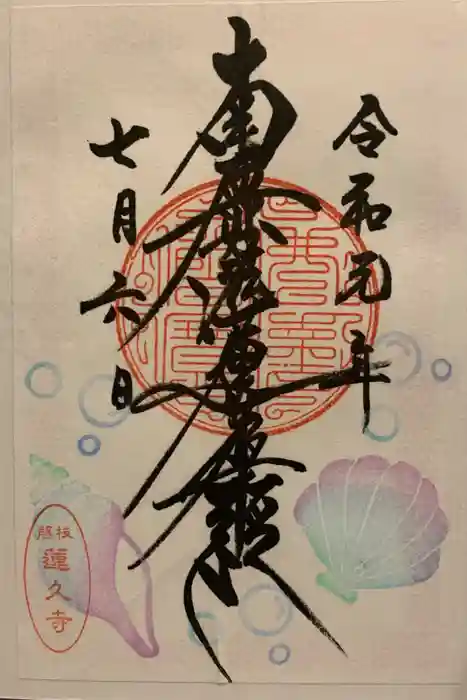 令和元年
南無妙法蓮華経
七月六日
蓮久寺